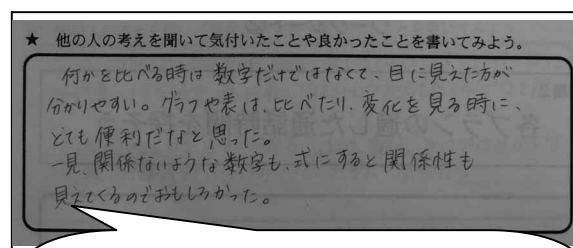 ★ 他の人の考えを聞いて気付いたことや良かったことを書いてみよう。
何かを比べる時は数字だけではなくて、目に見えた方が
分かりやすい。グラフや表は、比べたり、変化を見る時に、
とても便利だなと思った。
一見、関係ないような数字も、式にすると関係性も
見えてくるのでおもしろかった。